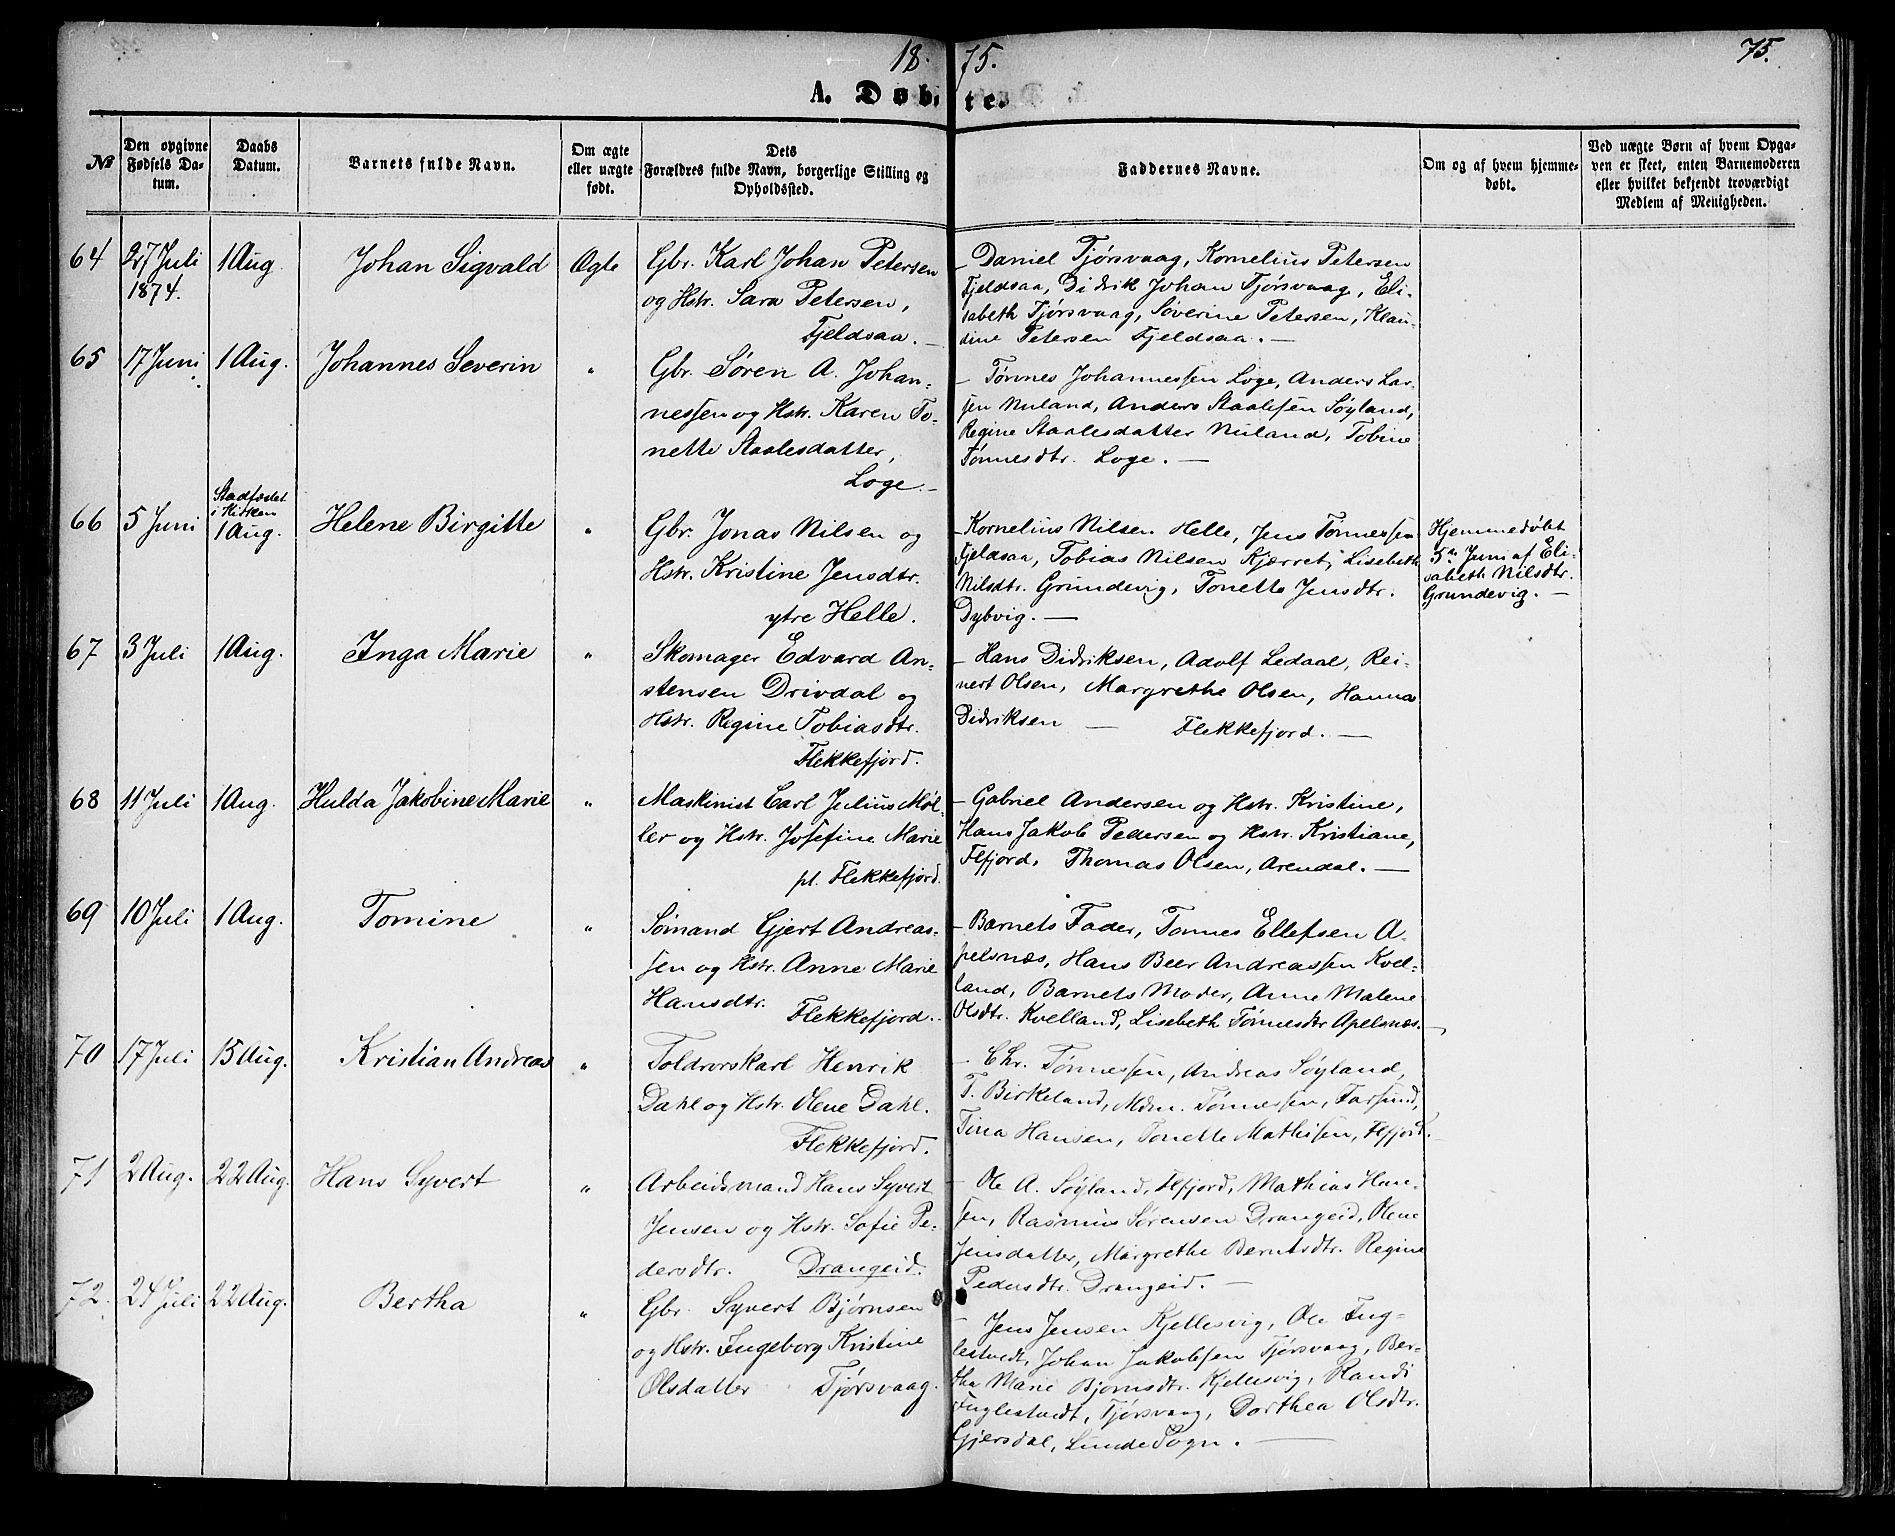 1875.
75.
A. Døbte.
№
Den opgivne Fødsels Datum.
Daabs Datum.
Barnets fulde Navn.
Om ægte eller uægte født.
Dets Forældres fulde Navn, borgerlige Stilling og Opholdssted.
Faddernes Navne.
Om og af hvem hjemmedøbt.
Ved uægte Børn af hvem Opgaven er skeet, enten Barnemoderen eller hvilket bekjendt troværdigt Medlem af Menigheden.
64 27 Juli 1874. 1 Aug. Johan Sigvald Ægte
Gbr. Karl Johan Petersen
og Hstr. Sara Petersen,
Fjeldsaa. —
— Daniel Tjørsvaag, Kornelius Petersen
Fjeldsaa, Didrik Johan Tjørsvaag, Eli-
sabeth Tjørsvaag, Søverine Petersen, Klau-
dine Petersen Fjeldsaa. —
65 17 Juni 1 Aug. Johannes Severin "
Gbr. Søren A. Johan-
nessen og Hstr. Karen To-
nette Staalesdatter,
Loge. —
— Tønnes Johannessen Loge, Anders Lar-
sen Nuland, Anders Staalesen Søyland,
Regine Staalesdatter Nuland, Tobine
Tønnesdtr. Loge. —
66 5 Juni Stadfæstet i Kirken 1 Aug. Helene Birgitte "
Gbr. Jonas Nilsen og
Hstr. Kristine Jensdtr.
ytre Helle.
— Kornelius Nilsen Helle, Jens Tønnessen
Fjeldsaa, Tobias Nilsen Kjørret, Lisebeth
Nilsdtr. Grundevig, Tonette Jensdtr.
Dybvig. —
Hjemmedøbt
5te Juni af Eli-
sabeth Nilsdtr.
Grundevig. —
67 3 Juli 1 Aug. Inga Marie "
Skomager Edvard An-
stensen Drivdal og
Hstr. Regine Tobiasdtr.
Flekkefjord.
— Hans Didriksen, Adolf Ledaal, Rei-
nert Olsen, Margrethe Olsen, Hanna
Didriksen — Flekkefjord. —
68 11 Juli 1 Aug. Hulda Jakobine Marie "
Maskinist Carl Julius Møl-
ler og Hstr. Josefine Marie
pt. Flekkefjord.
— Gabriel Andersen og Hstr. Kristine,
Hans Jakob Pedersen og Hstr. Kristiane,
Flfjord, Thomas Olsen, Arendal. —
69 10 Juli 1 Aug. Tomine "
Sømand Gjert Andreas-
sen og Hstr. Anne Marie
Hansdtr. Flekkefjord. —
— Barnets Fader, Tønnes Ellefsen A-
pelsnæs, Hans Beer Andreassen Kvel-
land, Barnets Moder, Anne Malene
Olsdtr. Kvelland, Lisebeth Tønnesdtr Apelsnæs. —
70 17 Juli 15 Aug. Kristian Andreas "
Toldrorskarl Henrik
Dahl og Hstr. Olene Dahl.
Flekkefjord.
— Chr. Tønnessen, Andreas Søyland,
T. Birkeland, Mdm. Tønnessen, Farsund,
Tina Hansen, Tonette Mathisen, Flfjord. —
71 2 Aug. 22 Aug. Hans Syvert "
Arbeidsmand Hans Syvert
Jensen og Hstr. Sofie Pe-
dersdtr. Drangeid.
— Ole A. Søyland, Flfjord, Mathias Han-
sen, Rasmus Sørensen Drangeid, Olene
Jensdatter, Margrethe Berntsdtr. Regine
Pedersdtr. Drangeid. —
72. 24 Juli 22 Aug. Bertha "
Gbr. Syvert Bjørnsen
og Hstr. Ingeborg Kristine
Olsdatter Tjørsvaag.
— Jens Jensen Kjellesvig, Ole Fug-
lestvedt, Johan Jakobsen Tjørsvaag, Ber-
tha Marie Bjørnsdtr. Kjellesvig, Randi
Fuglestvedt, Tjørsvaag, Dorthea Olsdtr.
Gjersdal, Lunde Sogn. —